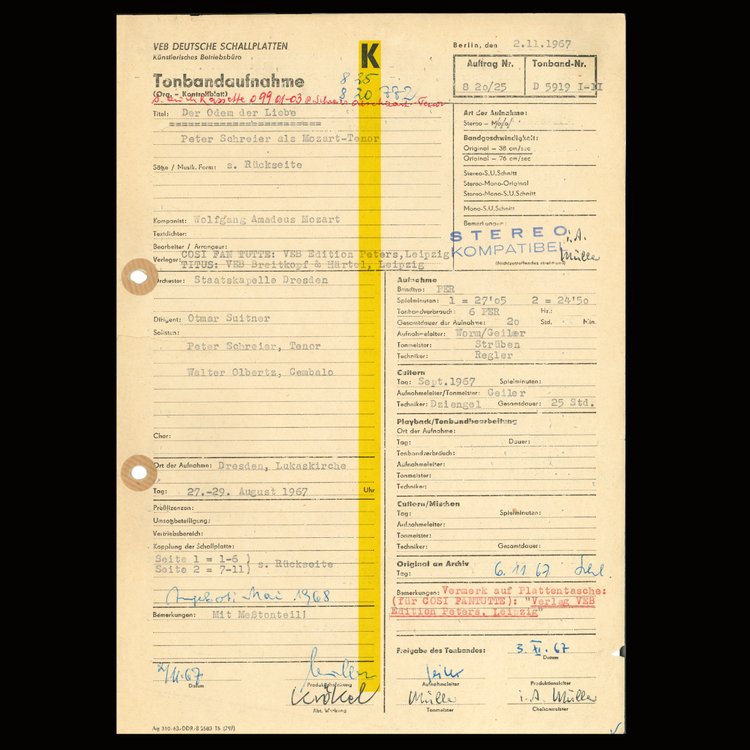 VEB DEUTSCHE SCHALLPLATTEN
Künstlerisches Betriebsbüro
Tonbandaufnahme
(Org. - Kontrollblatt)
K
8 35
8 20 782
Berlin, den 2.11.1967
Auftrag Nr. Tonband-Nr.
8 20/25 D 5919 I-II
Titel: Der Odem der Liebe
Peter Schreier als Mozart-Tenor
Sätze / Musik. Form: s. Rückseite
Komponist: Wolfgang Amadeus Mozart
Textdichter:
Bearbeiter / Arrangeur:
Verleger: COSI FAN TUTTE: VEB Edition Peters, Leipzig
TITUS: VEB Breitkopf & Härtel, Leipzig
Orchester: Staatskapelle Dresden
Dirigent: Otmar Suitner
Solisten:
Peter Schreier, Tenor
Walter Olbertz, Cembalo
Chor:
Ort der Aufnahme: Dresden, Lukaskirche
Tag: 27.-29. August 1967 Uhr
Preßlizenzen:
Umsatzbeteiligung:
Vertriebsbereich:
Kopplung der Schallplatte:
Seite 1 = 1-6 )
Seite 2 = 7-11) s. Rückseite
Angebot: Mai 1968
Bemerkungen: Mit Meßtonteil!
Datum
Produktionsleitung
Krökel
Abt. Werbung
Art der Aufnahme:
Stereo - Mono
Bandgeschwindigkeit:
Original - 38 cm/sec
Original - 76 cm/sec
Stereo-S.U.Schnitt
Stereo-Mono-Original
Stereo-Mono-S.U.Schnitt
Mono-S.U.Schnitt
Bemerkungen:
STEREO
KOMPATIBEL
i.A. Müller
(Nichtzutreffendes streichen)
Aufnahme
Bandtyp: PER
Spielminuten: 1 = 27'05 2 = 24'50
Tonbandverbrauch: 6 PER Hz.:
Gesamtdauer der Aufnahme: 20 Std. Min.
Aufnahmeleiter: Worm/Geiler
Tonmeister: Strüben
Techniker: Regler
Cuttern
Tag: Sept.1967 Spielminuten:
Aufnahmeleiter/Tonmeister: Geiler
Techniker: Dziengel Gesamtdauer: 25 Std.
Playback/Tonbandbearbeitung
Ort der Aufnahme:
Tag: Dauer:
Tonbandverbrauch:
Aufnahmeleiter:
Tonmeister:
Techniker:
Cuttern/Mischen
Tag: Spielminuten:
Aufnahmeleiter:
Tonmeister:
Techniker: Gesamtdauer:
Original an Archiv
Tag: 6.11.67
Bemerkungen: Vermerk auf Plattentasche:
(für COSI FANTUTTE): "Verlag VEB
Edition Peters, Leipzig"
Freigabe des Tonbandes: 3. XI. 67
Datum
Geiler
Aufnahmeleiter
Produktionsleiter
Müller
Tonmeister
i.A. Müller
Chefmeister